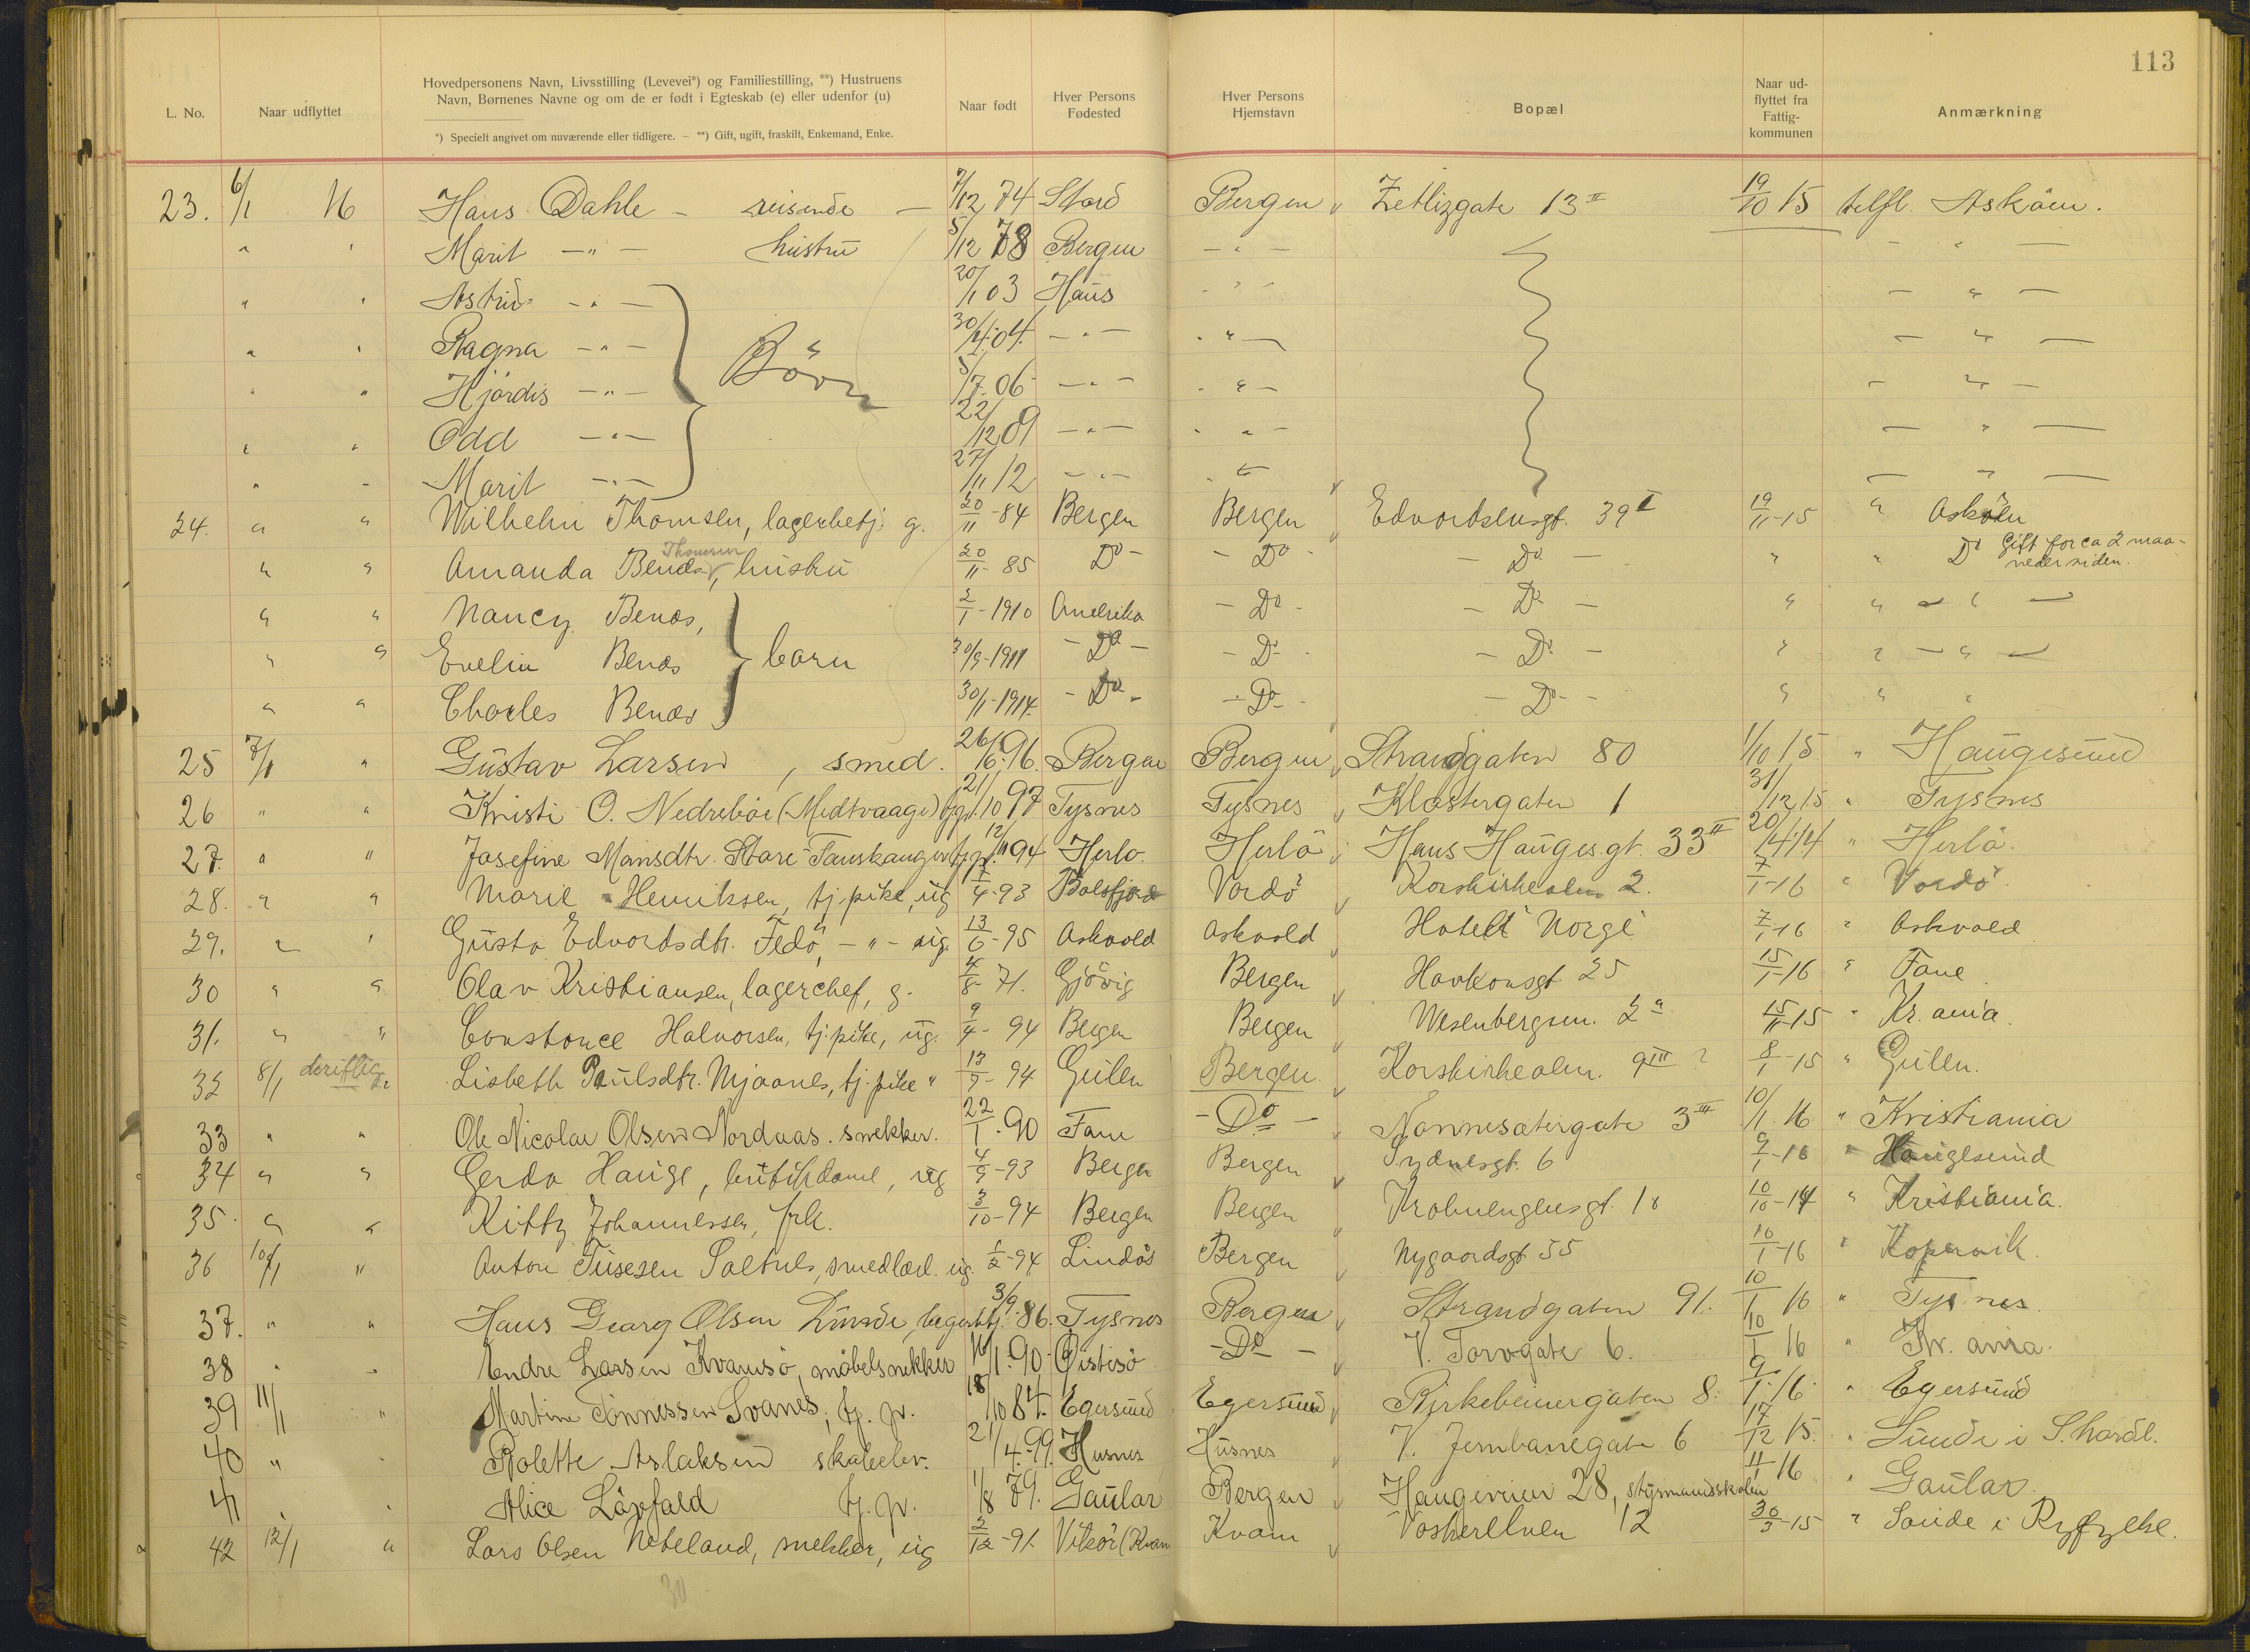 113
L. No.
Naar udflyttet
Hovedpersonens Navn, Livsstilling (Levevei*) og Familiestilling, **) Hustruens
Navn, Børnenes Navne og om de er født i Egteskab (e) eller udenfor (u)
*) Specielt angivet om nuværende eller tidligere. — **) Gift, ugift, fraskilt, Enkemand, Enke.
Naar født
Hver Persons
Fødested
Hver Persons
Hjemstavn
Bopæl
Naar ud-
flyttet fra
Fattig-
kommunen
Anmærkning
23. 6/1 16 Hans Dahle - reisende - 7/12 74 Stord Bergen Zetlizgate 13 II 19/10 15 telfl. Asköen.
" " Marit - " - hustru 5/12 78 Bergen - " - - " -
" " Astrid - " - 20/1 03 Haus - " - - " -
" " Ragna - " - Börn 30/4 04 - " - - " - - " -
" " Hjördis - " - 5/7 06 - " - - " - - " -
" " Odd - " - 22/12 09 - " - - " - - " -
" " Marit - " - 27/11 12 - " - - " - - " -
24. " " Wilhelm Thomsen, lagerbetj. g. 20/11 - 84 Bergen Bergen Edvardsensgt. 39 I 19/11-15 " Asköen
" " Amanda Benæs, Thomsen hustru 20/11 - 85 Do - - Do - - Do - " " Do Gift for ca 2 maa-
neder siden.
" " Nancy Benæs, 2/1 - 1910 Amerika - Do - - Do - " " - " -
" " Evelin Benæs barn 30/9-1911 - Do - - Do - - Do - " " - " -
" " Charles Benæs 30/1-1914 - Do - - Do - - Do - " " "
25 7/1 " Gustav Larsen, smed. 26/6 96. Bergen Bergen Strandgaten 80 1/10 15 " Haugesund
26 " " Kristi O. Nedreböe (Medtvaage) tj.p. 21/10 97 Tysnes Tysnes Klostergaten 1 31/12 15 " Tysnes
27. " " Josefine Mansdtr. Stare-Fauskanger tj.p. 12/11 94 Herlo. Herlö Hans Hauges gt. 33 II 20/4 14 " Herlö.
28. " " Marie Henriksen, tj. pike, ug 7/4-93 Balsfjord Vardö Korskirkealm. 2. 7/1-16 " Vardö.
29. " " Gusta Edvardsdtr. Fedö, - " - ug. 13/6-95 Askvold Askvold Hotell Norge 7/1-16 " Askvold
30 " " Olav Kristiansen, lagerchef, g. 4/8- 71. Gjövig Bergen Haakonsgt. 25 15/1-16 " Fane
31. " " Constance Halvorsen, tj. pike, ug. 9/4- 94 Bergen Bergen Wesenbergsm. 2 a 15/11-15 " Kr.ania.
32 8/1 Lisbeth Paulsdtr. Njaanes, tj. pike " 94 Gulen Bergen Korskirkealm. 9 III ? 8/1-15 " Gulen.
33 " " Ole Nicolai Olsen Nordaas. snekker. 22/1. 90 Fane - Do - Nonnesætergate 3 III 10/1. 16 " Kristiania
34 " " Gerda Hauge, butikdame, ug 4/9-93 Bergen Bergen Sydnesgt. 6 9/1-16 " Haugesund
35. " " Kitty Johannessen, frk. 3/10-94 Bergen Bergen Krohnengensgt. 18 10/10-14 " Kristiania.
36 10/1 " Anton Tusesen Sætnes, smedlærl. ug. 1/2-94 Lindås Bergen Nygaardsgt 55 10/1-16 " Kopervik.
37. " " Hans Georg Olsen Lunde, lagerbtj. 3/9. 86. Tysnes Bergen Strandgaten 91. 10/1 16 " Tysnes.
38 " " Endre Larsen Kvamsö, möbelsnekker 16/1. 90. Östisö - Do - V. Torvgate 6. 10/1 16 " Kr. ania.
39 11/1 " Martine Tönnessen Svanes, tj. p. 18/10 84. Egersund Egersund Birkebeinergaten 8. 9/1. 16. " Egersund
40 " " Rolette Aslaksen skoleelev. 21/4. 99. Husnes Husnes V. Jernbanegate 6 17/12 15. " Sunde i S. hordl.
41 " Alice Lövfald tj. p. 1/8 79. Gaular Bergen Haugeveien 28, styrmandsskolen 11/1 16 " Gaular.
42 12/1 " Lars Olsen Nebeland, snekker, ug 2/12-91. Vikör (Kvam Kvam Vaskerelven 12 30/3-15 " Saude i Ryfylke.
30